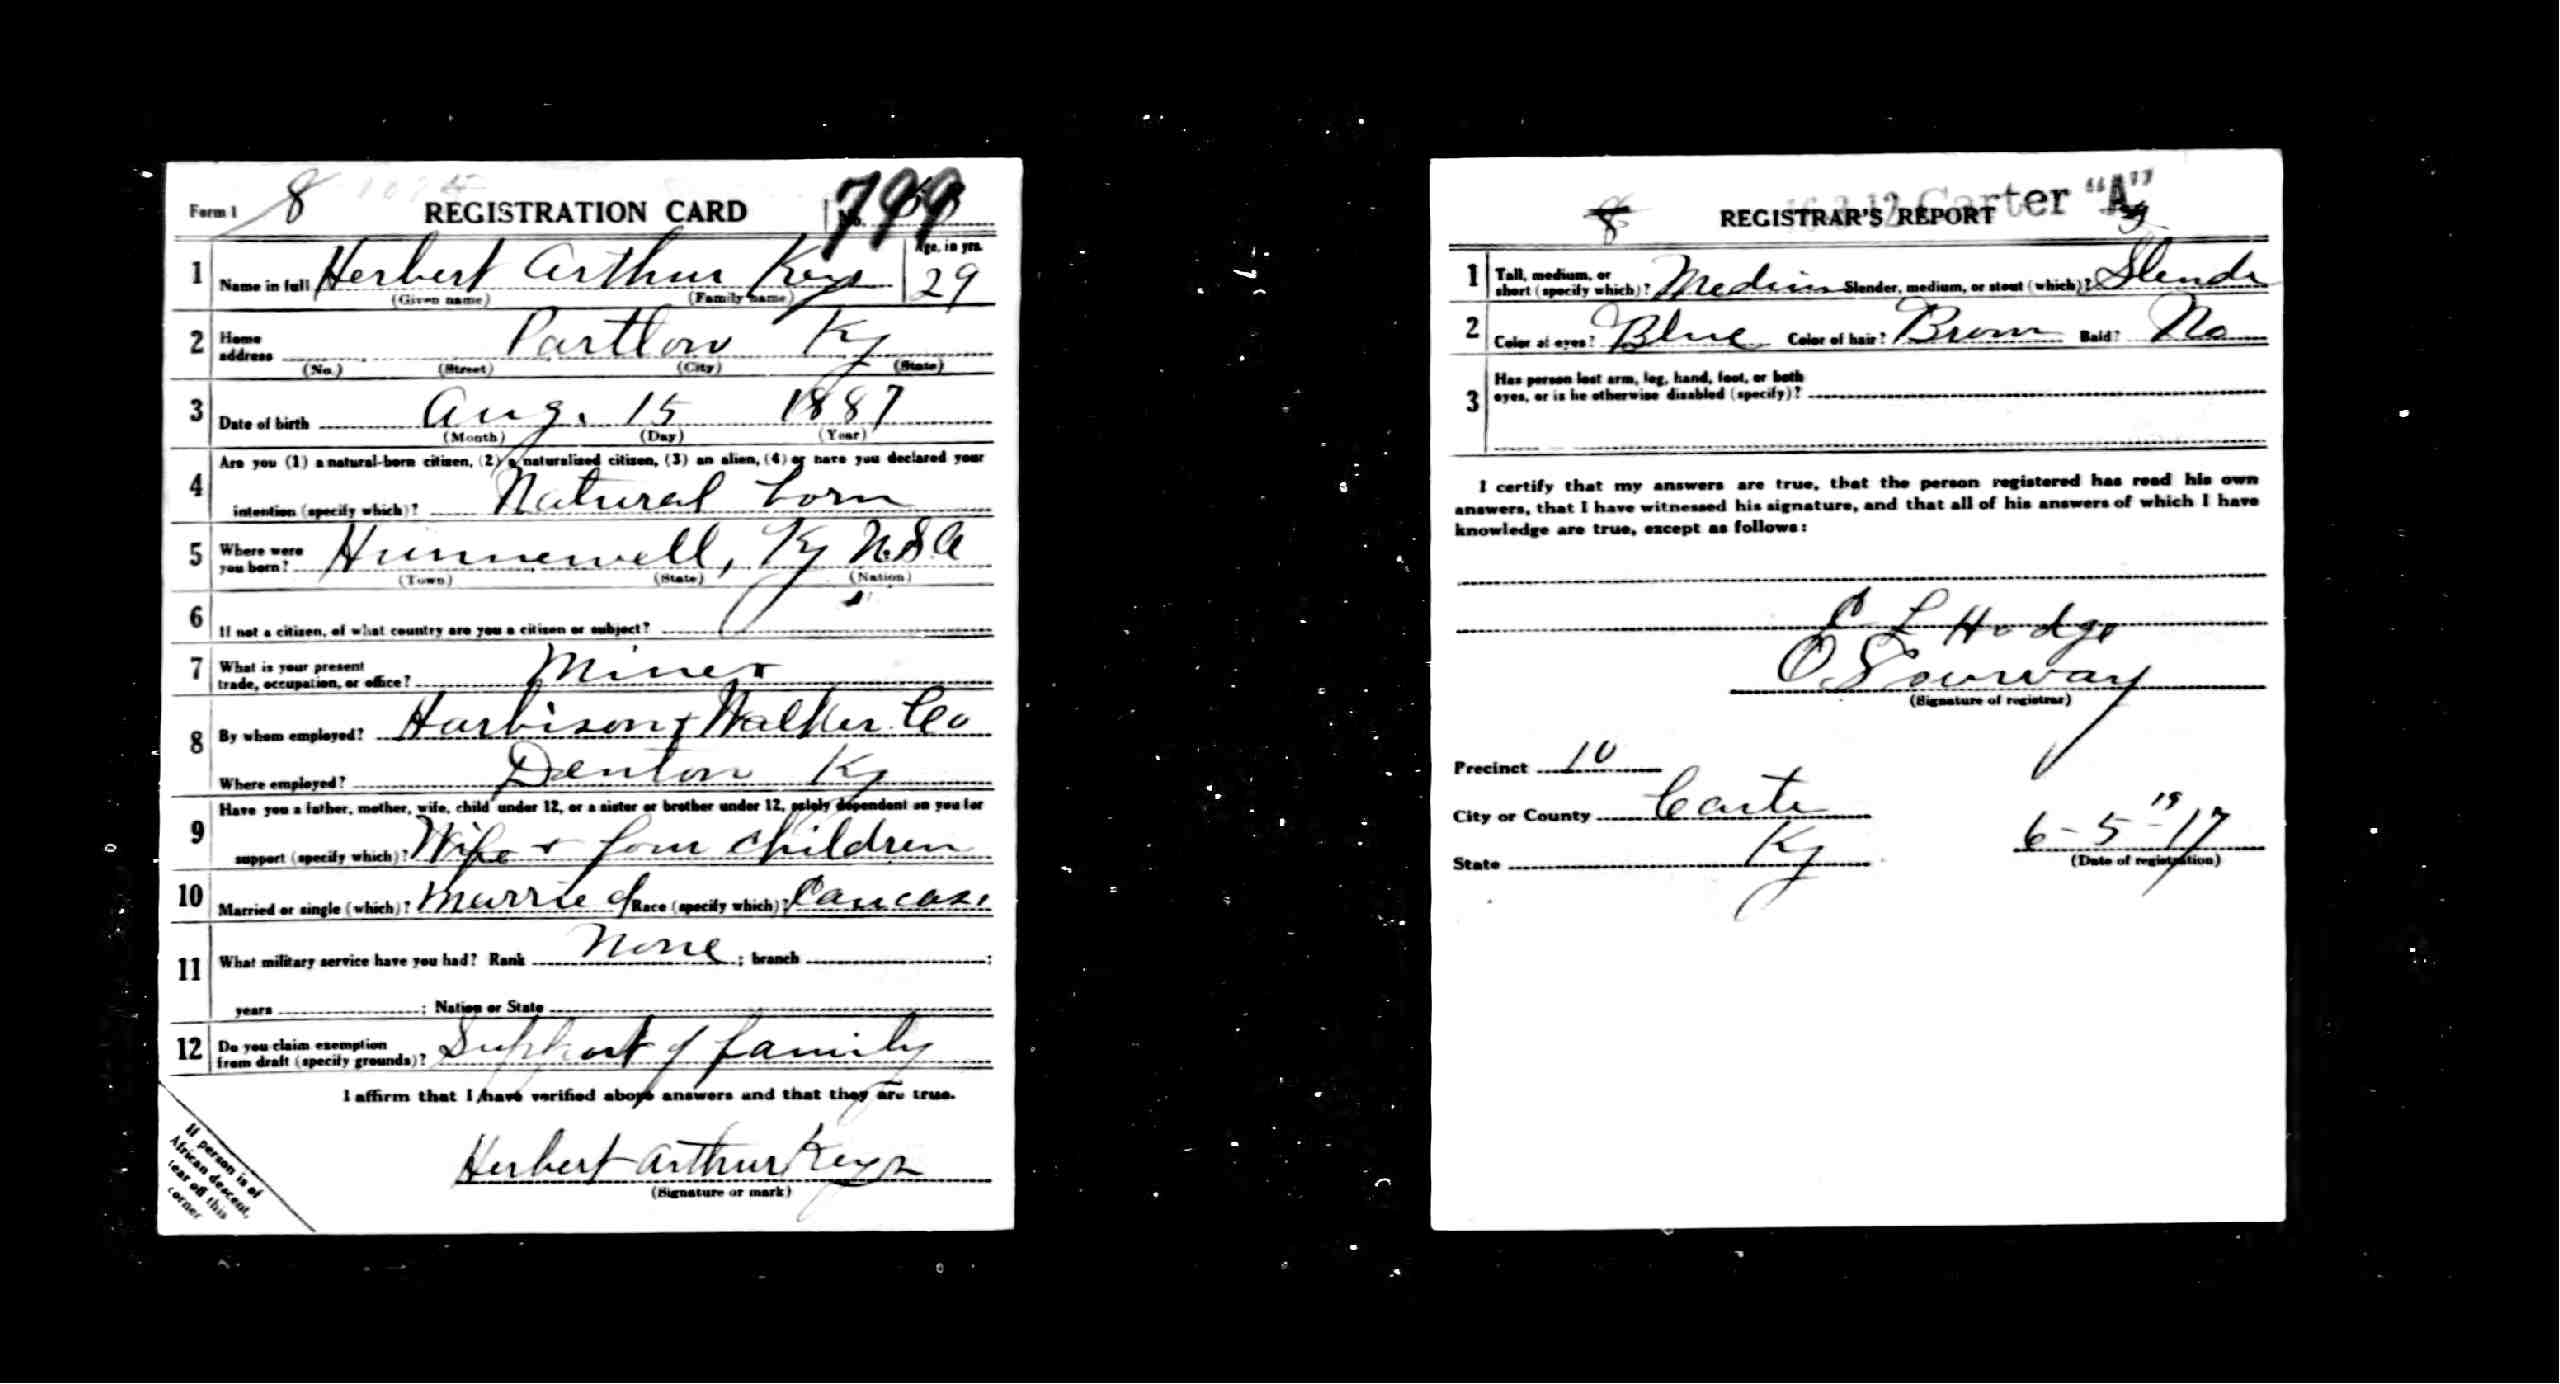 Form 1 8 REGISTRATION CARD No. 799
1 Name in full Herbert Arthur Keys Age, in yrs. 29
(Given name) (Family name)
2 Home address Partlow Ky
(No.) (Street) (City) (State)
3 Date of birth Aug. 15 1887
(Month) (Day) (Year)
Are you (1) a natural-born citizen, (2) a naturalized citizen, (3) an alien, (4) or have you declared your
4 intention (specify which)? Natural born
5 Where were you born? Hunnewell, Ky USA
(Town) (State) (Nation)
6 If not a citizen, of what country are you a citizen or subject?
7 What is your present trade, occupation, or office? Miner
8 By whom employed? Harbison & Walker Co
Where employed? Denton Ky
Have you a father, mother, wife, child under 12, or a sister or brother under 12, solely dependent on you for
9 support (specify which)? Wife & four children
10 Married or single (which)? Married Race (specify which)? Caucasi
11 What military service have you had? Rank None ; branch ;
years ; Nation or State
12 Do you claim exemption from draft (specify grounds)? Support of family
I affirm that I have verified above answers and that they are true.
Herbert Arthur Keys
(Signature or mark)
If person is of
African descent,
tear off this
corner
Carter "A"
REGISTRAR'S REPORT
1 Tall, medium, or short (specify which)? Medium Slender, medium, or stout (which)? Slender
2 Color of eyes? Blue Color of hair? Brown Bald? No
3 Has person lost arm, leg, hand, foot, or both
eyes, or is he otherwise disabled (specify)?
I certify that my answers are true, that the person registered has read his own
answers, that I have witnessed his signature, and that all of his answers of which I have
knowledge are true, except as follows:
L Hodge
(Signature of registrar)
Precinct 10
City or County Carter
State Ky
6-5-1917
(Date of registration)